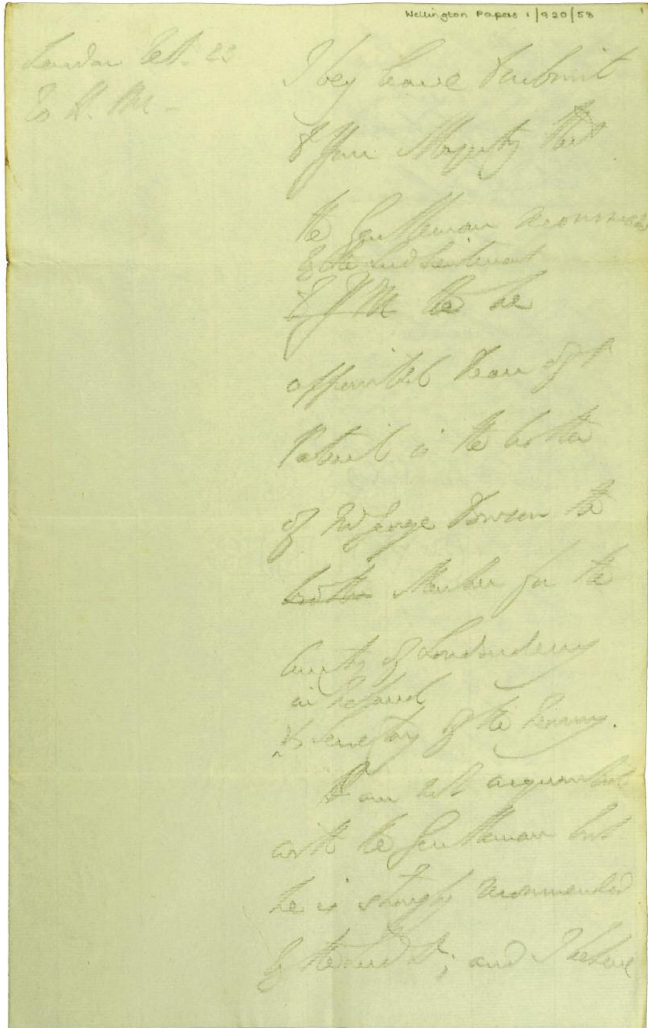 Wellington Papers 1/920/58
London 23
To H. M. –
I beg leave to submit
to Your Majesty that
the Gentleman recommended
by the Lord Lieutenant
to Y M to be
appointed Dean of St
Patrick is the brother
of Mr George Dawson the
brother Member for the
County of Londonderry
in Ireland
& Secretary of the Treasury.
I am not acquainted
with the Gentleman but
he is strongly recommended
by the Lord Lt; and I believe